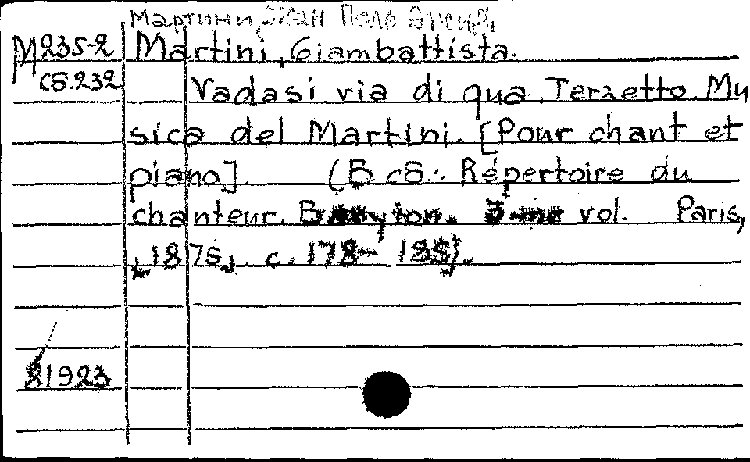 Мартини, Жан Поль Эгид
M 235-2 Martini, Giambattista.
сб.232 Vadasi via di qua. Terzetto. Mu
sica del Martini. [Pour chant et
piano]. (В сб.: Répertoire du
chanteur. Baryton. 3-me vol. Paris,
1875, с. 178-
81923